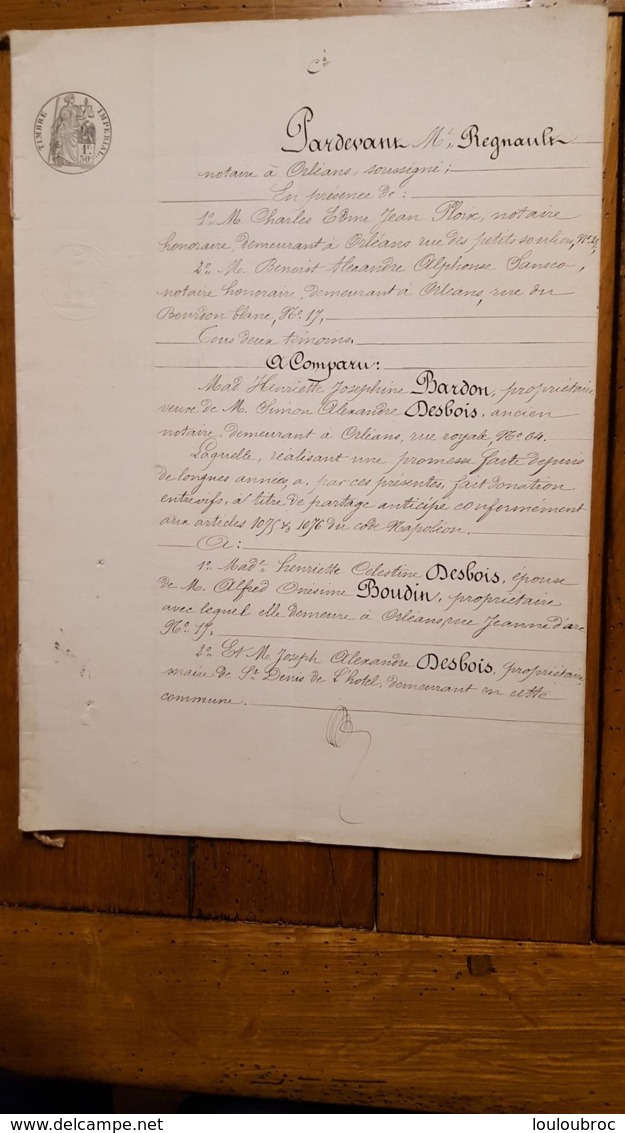 TIMBRE IMPERIAL
1F.
50c.
Pardevant Me. Regnault
notaire à Orléans, soussigné;
En présence de:
1o. M. Charles Edme Jean Ploix, notaire
honoraire demeurant à Orléans rue des petits souliers, No.
2o. M. Benoist Alexandre Alphonse
notaire honoraire, demeurant à Orléans, rue du
Bourdon blanc, No. 17,
Tous deux témoins.
A Comparu:
Mad. Henriette Joséphine Bardon, propriétaire,
veuve de M. Simon Alexandre Desbois, ancien
notaire, demeurant à Orléans, rue royale, No. 64.
Laquelle, réalisant une promesse faite depuis
de longues années, a, par ces présentes, fait donation
entrevifs, à titre de partage anticipé conformément
aux articles 1075 & 1076 du code Napoléon.
A:
1o. Made. Henriette Célestine Desbois, épouse
de M. Alfred Onésime Boudin, propriétaire
avec lequel elle demeure à Orléans, rue Jeanne d'arc
No. 17.
2o. Et M. Joseph Alexandre Desbois, propriétaire,
maire de St. Denis de l'hotel, demeurant en cette
commune.
delcampe.net
louloubroc